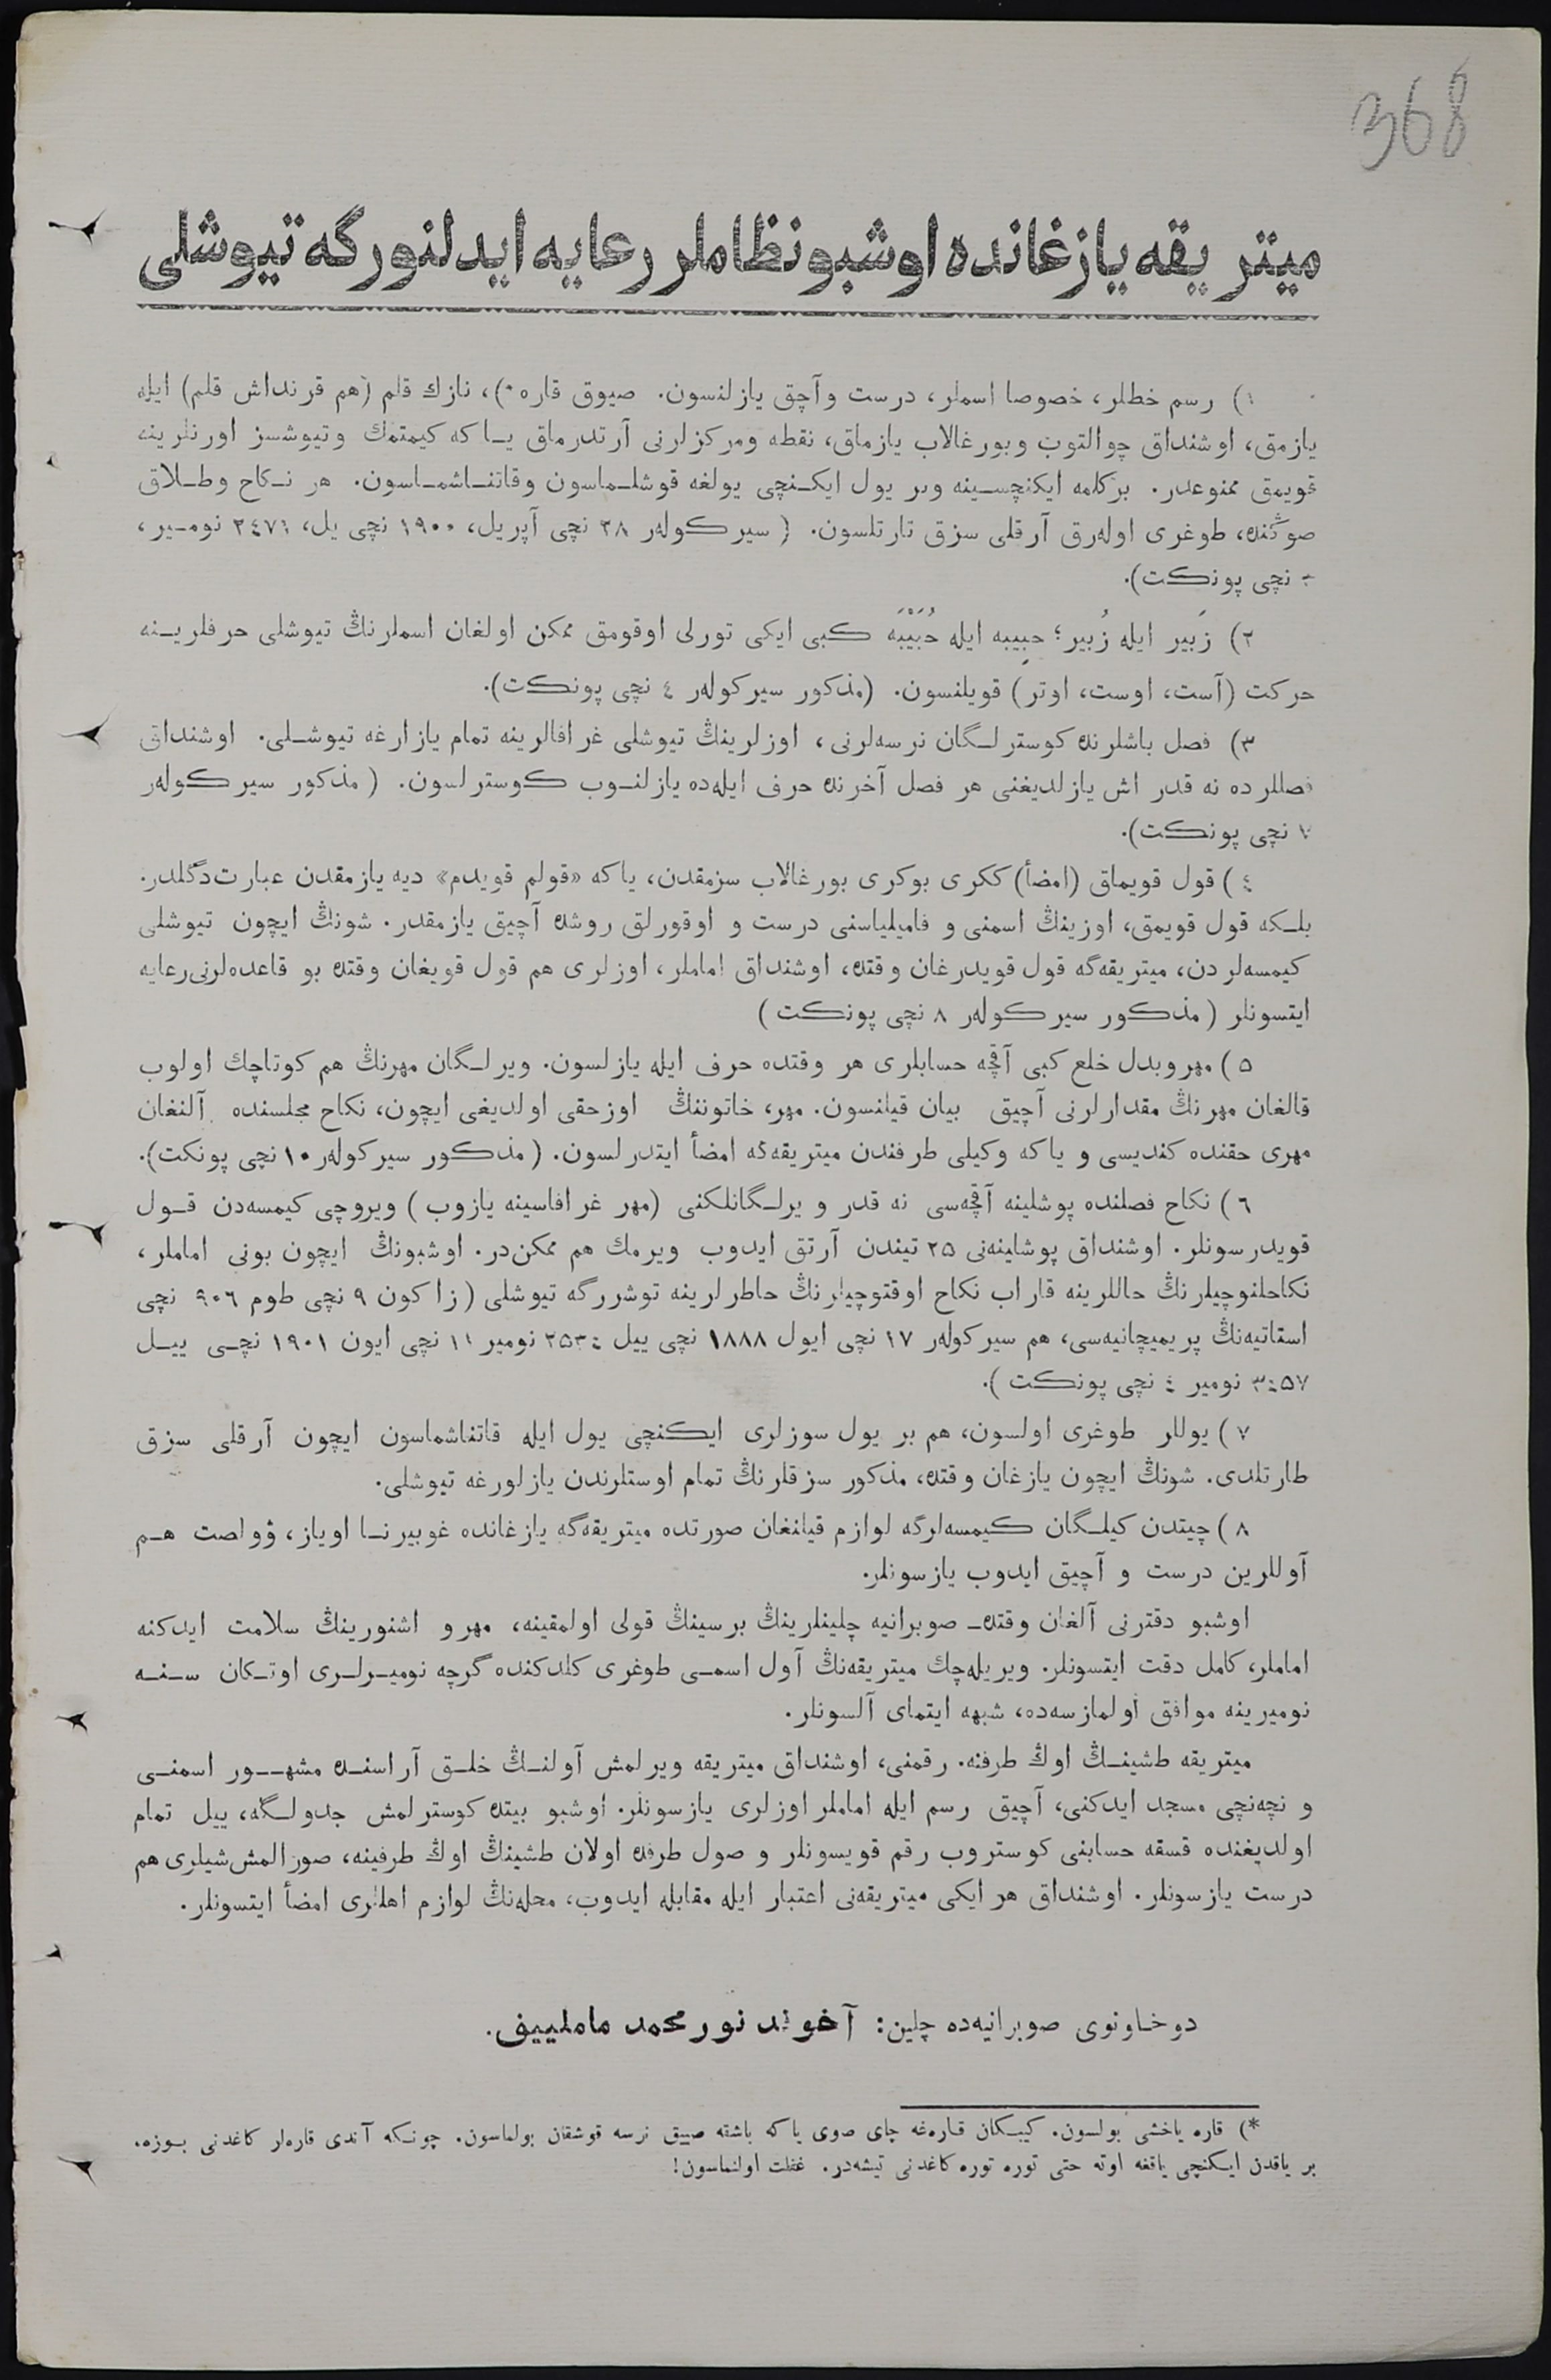 368
میتریقه یازغانده اوشبو نظاملر رعایه ایدلنورگه تیوشلی
۱) رسم خطلر، خصوصا اسملر، درست و آچق یازلنسون. صیوق قاره *)، نازك قلم (هم قرنداش قلم) ایله
یازمق، اوشنداق چوالتوب و بورغالاب یازماق، نقطه و مركزلرنی آرتدرماق یـا كه كیمتمك و تیوشسز اورنلرینه
قویمق ممنوعدر. بر كلمه ایكنچسـینه و بر یول ایكـنچی یولغه قوشلـماسون و قاتنـاشمـاسون. هر نـكاح و طـلاق
صوڭنده، طوغری اولەرق آرقلی سزق تارتلسون. (سیركولەر ۲۸ نچی آپریل، ۱۹۰۰ نچی یل، ۲٤۷۱ نومـیر،
نچی پونكت).
۲) زَبیر ایله زُبیر؛ حبِیبه ایله حُبَیْبَه كبی ایكی تورلی اوقومق ممكن اولغان اسملرنڭ تیوشلی حرفلریـنه
حركت (آست، اوست، اوتر) قویلنسون. (مذكور سیركولەر ٤ نچی پونكت).
۳) فصل باشلرنده كوسترلـگان نرسەلرنی، اوزلرینڭ تیوشلی غرافالرینه تمام یازارغه تیوشـلی. اوشنداق
فصللرده نه قدر اش یازلدیغنی هر فصل آخرنده حرف ایلەده یازلنـوب كوسترلسون. (مذكور سیركولەر
۷ نچی پونكت).
٤) قول قویماق (امضأ) ككری بوكری بورغالاب سزمقدن، یا كه «قولم قویدم» دیه یازمقدن عبارت دگلدر.
بلـكه قول قویمق، اوزینڭ اسمنی و فامیلیاسنی درست و اوقورلق روشده آچیق یازمقدر. شونڭ ایچون تیوشلی
كیمسەلردن، میتریقەگه قول قویدرغان وقتده، اوشنداق اماملر، اوزلری هم قول قویغان وقتده بو قاعدەلرنی رعایه
ایتسونلر (مذكور سیركولەر ۸ نچی پونكت)
۵) مهر و بدل خلع كبی آقچه حسابلری هر وقتده حرف ایله یازلسون. ویرلـگان مهرنڭ هم كوتاچك اولوب
قالغان مهرنڭ مقدارلرنی آچیق بیان قیلنسون. مهر، خاتوننڭ اوز حقی اولدیغی ایچون، نكاح مجلسنده آلنغان
مهری حقنده كندیسی و یا كه وكیلی طرفندن میتریقەگه امضأ ایتدرلسون. (مذكور سیركولەر ۱۰ نچی پونكت).
٦) نكاح فصلنده پوشلینه آقچەسی نه قدر ویرلـگانلكنی (مهر غرافاسینه یازوب) ویروچی كیمسەدن قـول
قویدرسونلر. اوشنداق پوشلینەنی ۲۵ تیندن آرتق ایدوب ویرمك هم ممكن در. اوشبونڭ ایچون بونی اماملر،
نكاحلنوچیلرنڭ حاللرینه قاراب نكاح اوقتوچیلرنڭ خاطرلرینه توشررگه تیوشلی (زاكون ۹ نچی طوم ۹۰٦ نچی
استاتیەنڭ پریمیچانیەسی، هم سیركولەر ۱۷ نچی ایول ۱۸۸۸ نچی ییل ۲۵۳٤ نومیر ۱۱ نچی ایون ۱۹۰۱ نچـی ییـل
۳٤۵۷ نومیر ٤ نچی پونكت).
۷) یوللر طوغری اولسون، هم بر یول سوزلری ایكنچی یول ایله قاتناشماسون ایچون آرقلی سزق
طارتلدی. شونڭ ایچون یازغان وقتده، مذكور سزقلرنڭ تمام اوستلرندن یازلورغه تیوشلی.
۸) چیتدن كیلـگان كیمسەلرگه لوازم قیلنغان صورتده میتریقەگه یازغانده غوبیرنـا اویاز، ۋولصت هـم
آوللرین درست و آچیق ایدوب یازسونلر.
اوشبو دفترنی آلغان وقتده صوبرانیه چلینلرینڭ برسینڭ قولی اولمقینه، مهر و اشنورینڭ سلامت ایدكنه
اماملر، كامل دقت ایتسونلر. ویریلەچك میتریقەنڭ آول اسمـی طوغری كلدكنده گرچه نومیـرلـری اوتـكان سـنـه
نومیرینه موافق اولمازسەده، شبهه ایتمای آلسونلر.
میتریقه طشینـڭ اوڭ طرفنه. رقمنی، اوشنداق میتریقه ویرلمش آولنـڭ خلـق آراسنـده مشهـور اسمنـی
و نچەنچی مسجد ایدكنی، آچیق رسم ایله اماملر اوزلری یازسونلر. اوشبو بیتده كوسترلمش جدولـگه، ییل تمام
اولدیغنده قسقه حسابنی كوستروب رقم قویسونلر و صول طرفده اولان طشینڭ اوڭ طرفینه، صورالمش شیلری هم
درست یازسونلر. اوشنداق هر ایكی میتریقەنی اعتبار ایله مقابله ایدوب، محلەنڭ لوازم اهللری امضأ ایتسونلر.
دوخاونوی صوبرانیەده چلین: آخوند نور محمد ماملییف.
*) قاره یاخشی بولسون. كیبـكان قارەغه چای صوی یا كه باشقه صییق نرسه قوشقان بولماسون. چونـكه آندی قارەلر كاغدنی بـوزه.
بر یاقدن ایـكنچی یاقغه اوته حتی توره توره كاغدنی تیشەدر. غفلت اولنماسون!